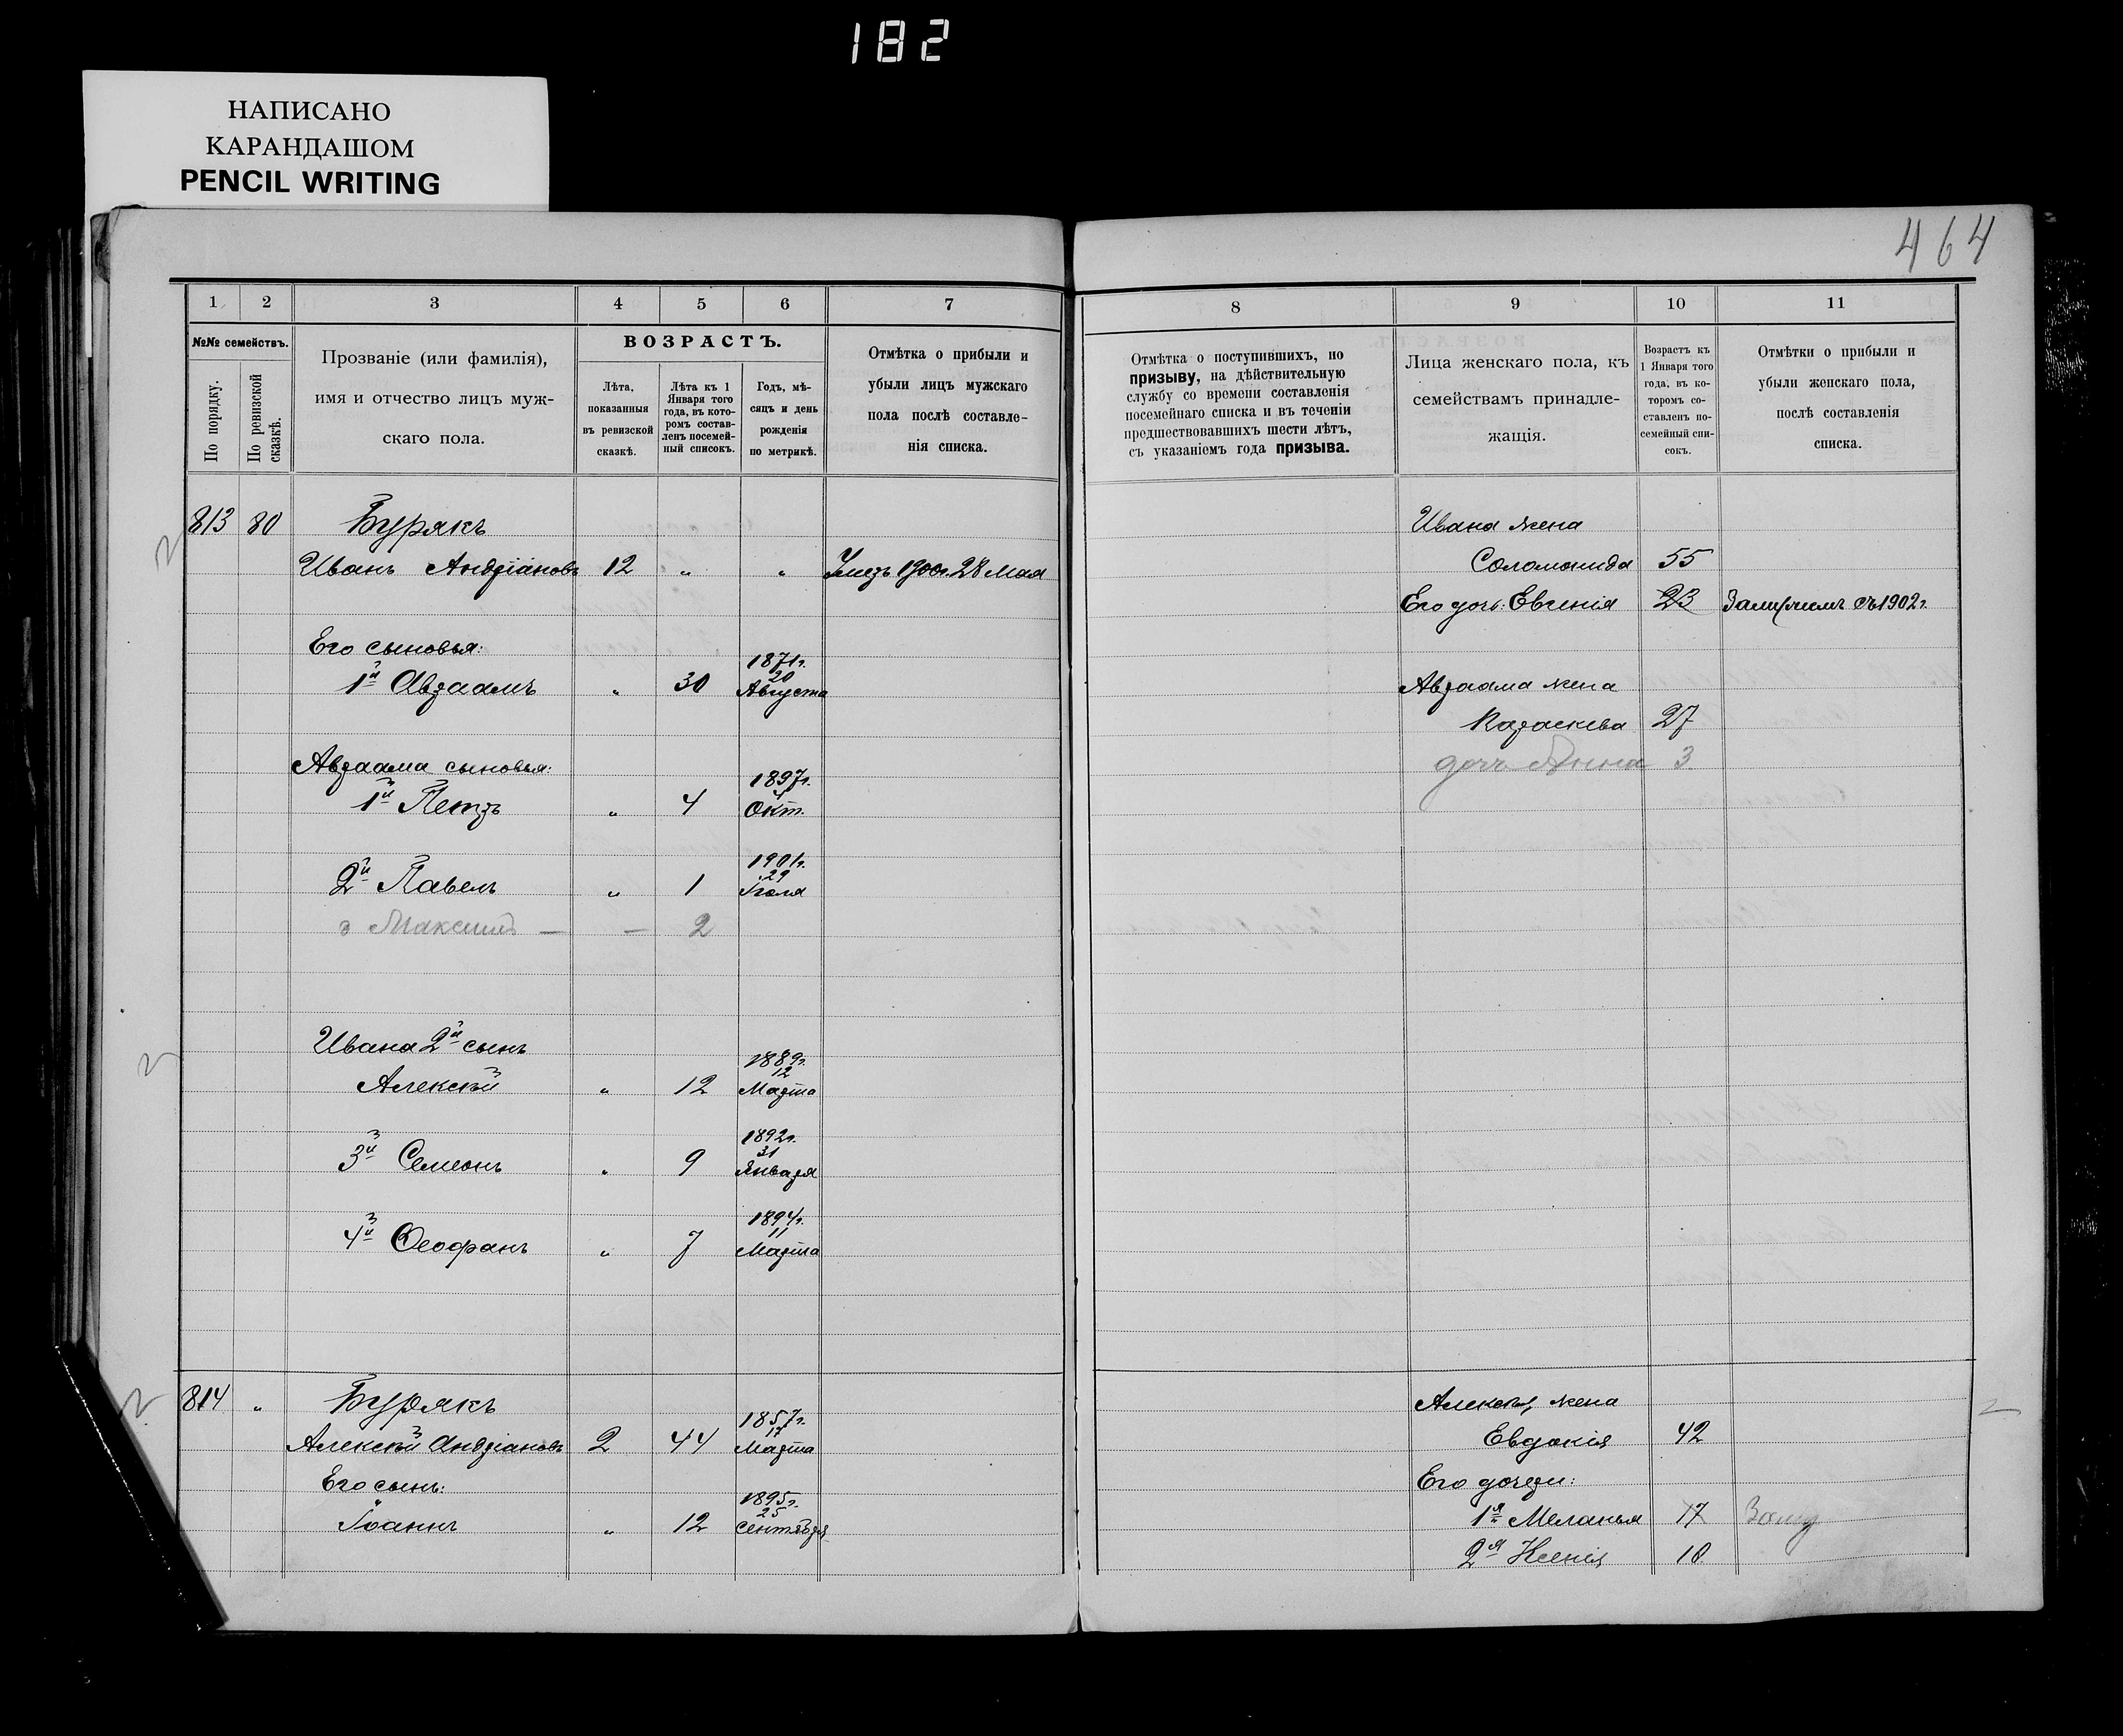 182
НАПИСАНО
КАРАНДАШОМ
PENCIL WRITING
464
1 2 3 4 5 6 7 8 9 10 11
№№ семействъ.
По порядку.
По ревизской сказкѣ.
Прозваніе (или фамилія),
имя и отчество лицъ муж-
скаго пола.
ВОЗРАСТЪ.
Лѣта,
показанныя
въ ревизской
сказкѣ.
Лѣта къ 1
Января того
года, въ кото-
ромъ состав-
ленъ посемей-
ный списокъ.
Годъ, мѣ-
сяцъ и день
рожденія
по метрикѣ.
Отмѣтка о прибыли и
убыли лицъ мужскаго
пола послѣ составле-
нія списка.
Отмѣтка о поступившихъ, по
призыву, на дѣйствительную
службу со времени составленія
посемейнаго списка и въ теченіи
предшествовавшихъ шести лѣтъ,
съ указаніемъ года призыва.
Лица женскаго пола, къ
семействамъ принадле-
жащія.
Возрастъ къ
1 Января того
года, въ ко-
торомъ со-
ставленъ по-
семейный спи-
сокъ.
Отмѣтки о прибыли и
убыли женскаго пола,
послѣ составленія
списка.
813 80 Бурякъ
Иванъ Андріановъ 12 " " Умеръ 1900г. 28 Мая
Его сыновья:
1й Авраамъ " 30 1871г. 20 Августа
Авраама сыновья:
1й Петръ " 4 1897г. 4 Окт.
2й Павелъ " 1 1901г. 29 Іюля
3 Максимъ — — 2
Ивана 2й сынъ
Алексѣй " 12 1889г. 12 Марта
3й Семеонъ " 9 1892г. 31 Января
4й Ѳеофанъ " 7 1894г. 11 Марта
814 " Бурякъ
Алексѣй Андріановъ 2 44 1857г. 17 Марта
Его сынъ:
Іоаннъ " 12 1895г. 25 Сентября
Ивана жена
Соломонида 55
Его дочь: Евгенія 23 Замужемъ съ 1902г.
Авраама жена
Параскева 27
дочь Анна 3
Алексѣя жена
Евдокія 42
Его дочери:
1я Меланья 17 Замуж
2я Ксенія 10